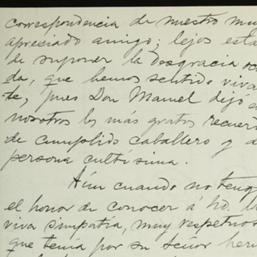 correspondencia de nuestro muy
apreciado amigo; lejos esta
de suponer la desgracia
da, que hemos sentido viva
te, pues Don Manuel dejó en
nosotros los mas gratos recuer
de cumplido caballero y d
persona cultisima.
Aún cuando no teng
el honor de conocer á Vd. la
viva simpatía, muy respetuos
que tenía por su Señor her